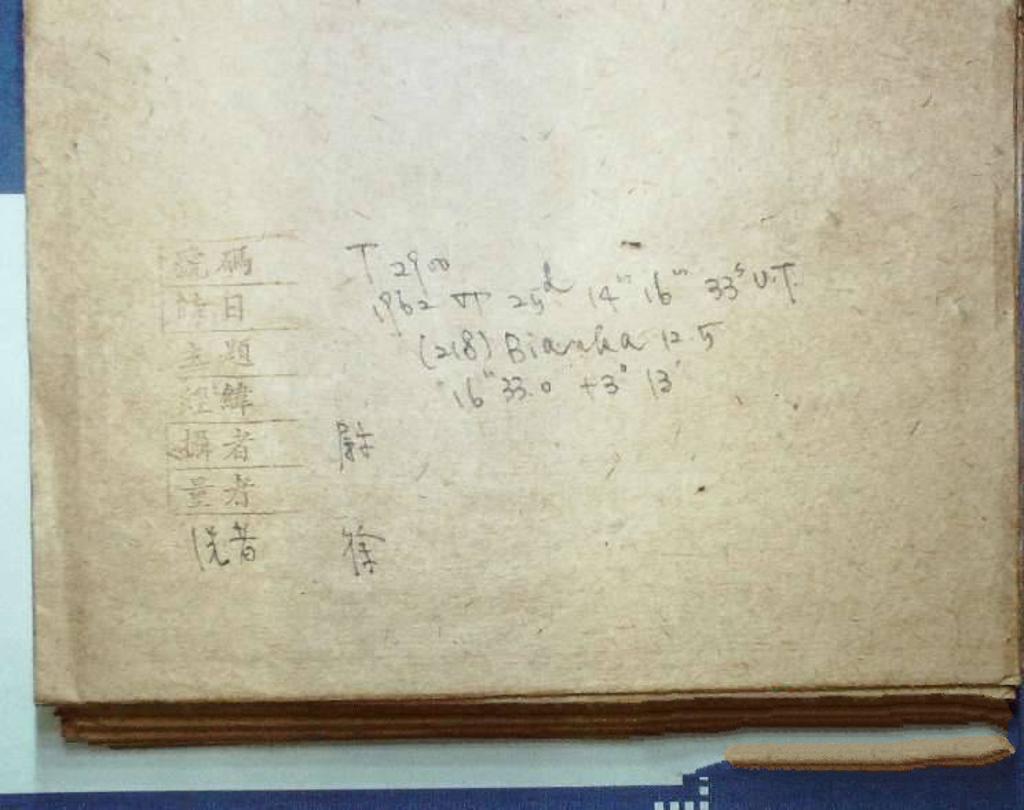 號碼 T 2900
時日 1962 VI 25d 14h 16m 33s U.T.
主題 (218) Bianka 12.5
經緯 16h 33.0 +3° 13'
攝者
量者
洗者 徐